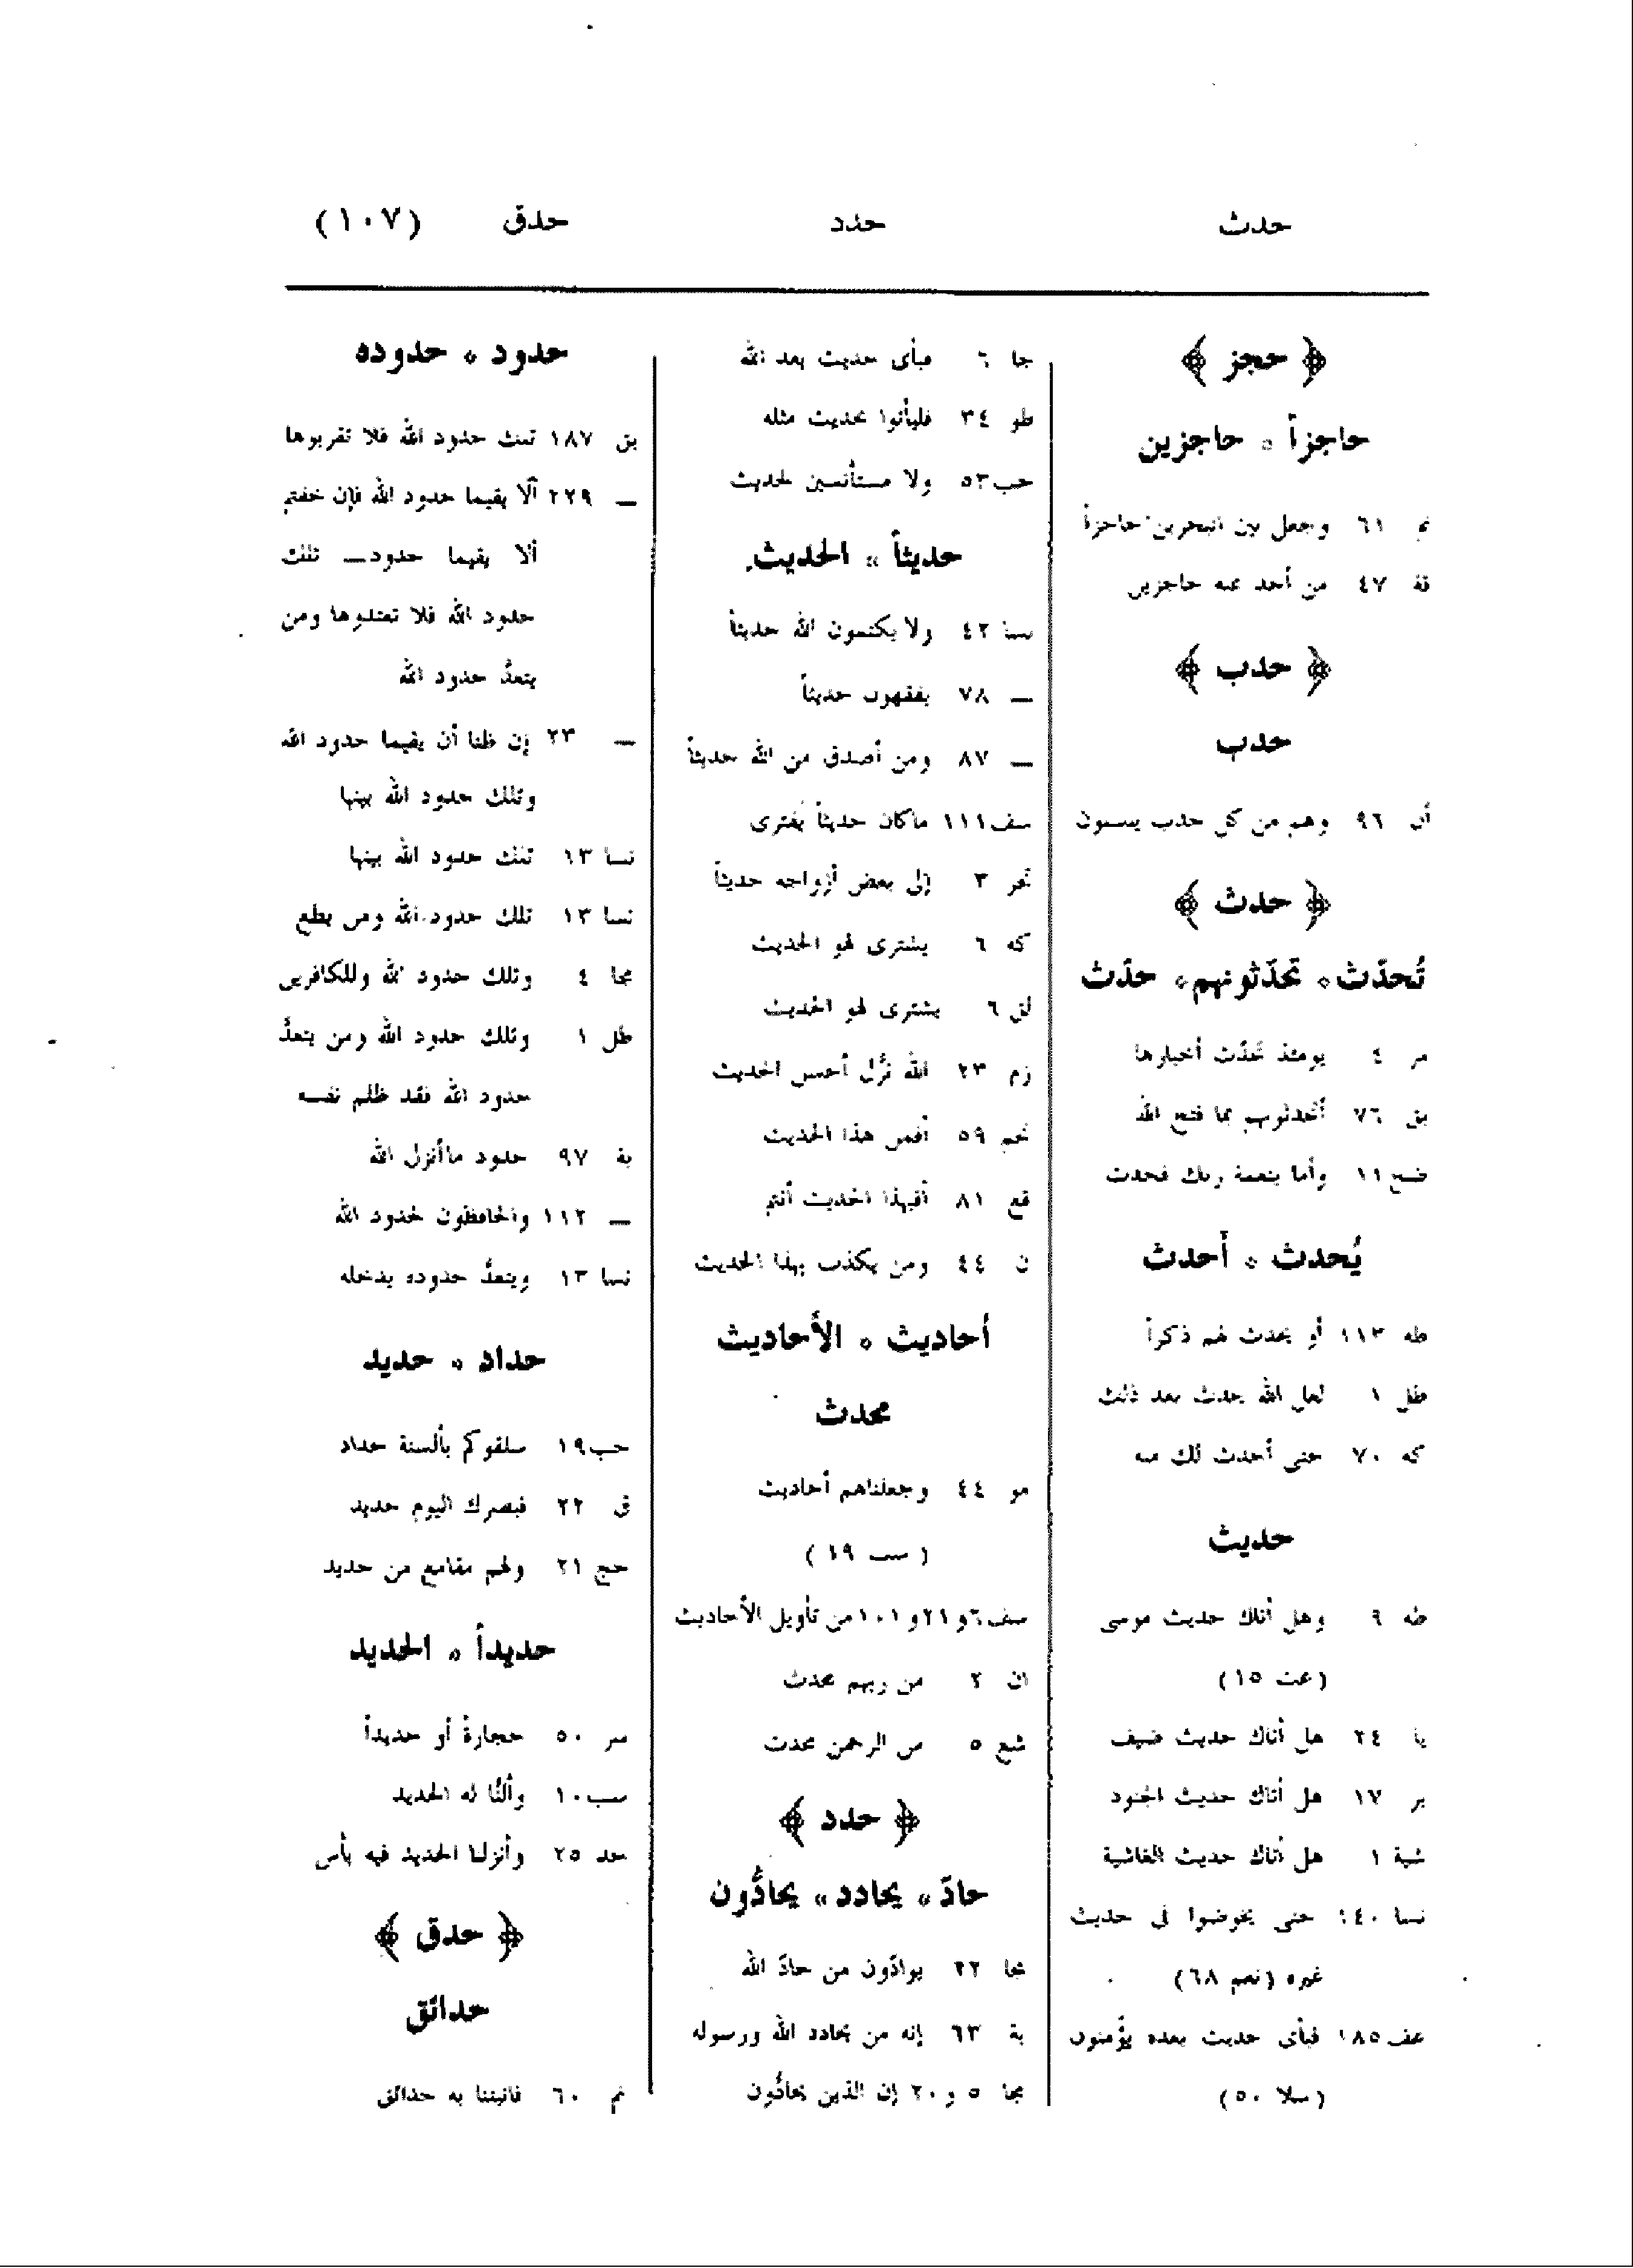 حدث حدد حدق (١٠٧)
﴿ حجز ﴾
حاجزاً ٭ حاجزين
نم ٦١ وجعل بين البحرين حاجزاً
قة ٤٧ من أحد عنه حاجزين
﴿ حدب ﴾
حدب
أن ٩٦ وهم من كل حدب ينسلون
﴿ حدث ﴾
تُحدّث ٭ تحدّثونهم ٭ حدّث
مر ٤ يومئذ تحدّث أخبارها
بق ٧٦ أتحدثونهم بما فتح الله
ضح ١١ وأما بنعمة ربك فحدث
يُحدث ٭ أحدث
طه ١١٣ أو يحدث لهم ذكراً
طل ١ لعل الله يحدث بعد ذلك
كه ٧٠ حتى أحدث لك منه
حديث
طه ٩ وهل أتاك حديث موسى
(عت ١٥)
يا ٢٤ هل أتاك حديث ضيف
بر ١٧ هل أتاك حديث الجنود
شية ١ هل أتاك حديث الغاشية
نسا ١٤٠ حتى يخوضوا فى حديث
غيره (نعم ٦٨)
عف ١٨٥ فبأى حديث بعده يؤمنون
(سلا ٥٠)
جا ٦ فبأى حديث بعد الله
طو ٣٤ فليأتوا بحديث مثله
حب ٥٣ ولا مستأنسين لحديث
حديثاً ٭ الحديث
نسا ٤٢ ولا يكتمون الله حديثاً
ــ ٧٨ يفقهون حديثاً
ــ ٨٧ ومن أصدق من الله حديثاً
سف ١١١ ماكان حديثاً يُفترى
تحر ٣ إلى بعض أزواجه حديثاً
كه ٦ يشترى لهو الحديث
لق ٦ يشترى لهو الحديث
زم ٢٣ الله نزَّل أحسن الحديث
نجم ٥٩ أفمن هذا الحديث
قع ٨١ أفبهذا الحديث أنتم
ن ٤٤ ومن يكذب بهذا الحديث
أحاديث ٭ الأحاديث
محدث
مو ٤٤ وجعلناهم أحاديث
(سب ١٩)
سف ٦ و ٢١ و ١٠١ من تأويل الأحاديث
ان ٢ من ربهم محدث
شع ٥ من الرحمن محدث
﴿ حدد ﴾
حادّ ٭ يحادد ٭ يحادُّون
مجا ٢٢ يوادّون من حادّ الله
بة ٦٣ إنه من يحادد الله ورسوله
مجا ٥ و ٢٠ إن الذين يحادُّون
حدود ٭ حدوده
بق ١٨٧ تلك حدود الله فلا تقربوها
ــ ٢٢٩ ألّا يقيما حدود الله فإن خفتم
ألا يقيما حدود ــ تلك
حدود الله فلا تعتدوها ومن
يتعدَّ حدود الله
ــ ٢٣ إن ظنا أن يقيما حدود الله
وتلك حدود الله يبينها
نسا ١٣ تلك حدود الله يبينها
نسا ١٣ تلك حدود الله ومن يطع
مجا ٤ وتلك حدود الله وللكافرين
طل ١ وتلك حدود الله ومن يتعدَّ
حدود الله فقد ظلم نفسه
بة ٩٧ حدود ماأنزل الله
ــ ١١٢ والحافظون لحدود الله
نسا ١٣ ويتعدَّ حدوده يدخله
حداد ٭ حديد
حب ١٩ سلقوكم بألسنة حداد
ق ٢٢ فبصرك اليوم حديد
حج ٢١ ولهم مقامع من حديد
حديداً ٭ الحديد
سر ٥٠ حجارةً أو حديداً
سب ١٠ وألنَّا له الحديد
حد ٢٥ وأنزلنا الحديد فيه بأس
﴿ حدق ﴾
حدائق
نم ٦٠ فأنبتنا به حدائق